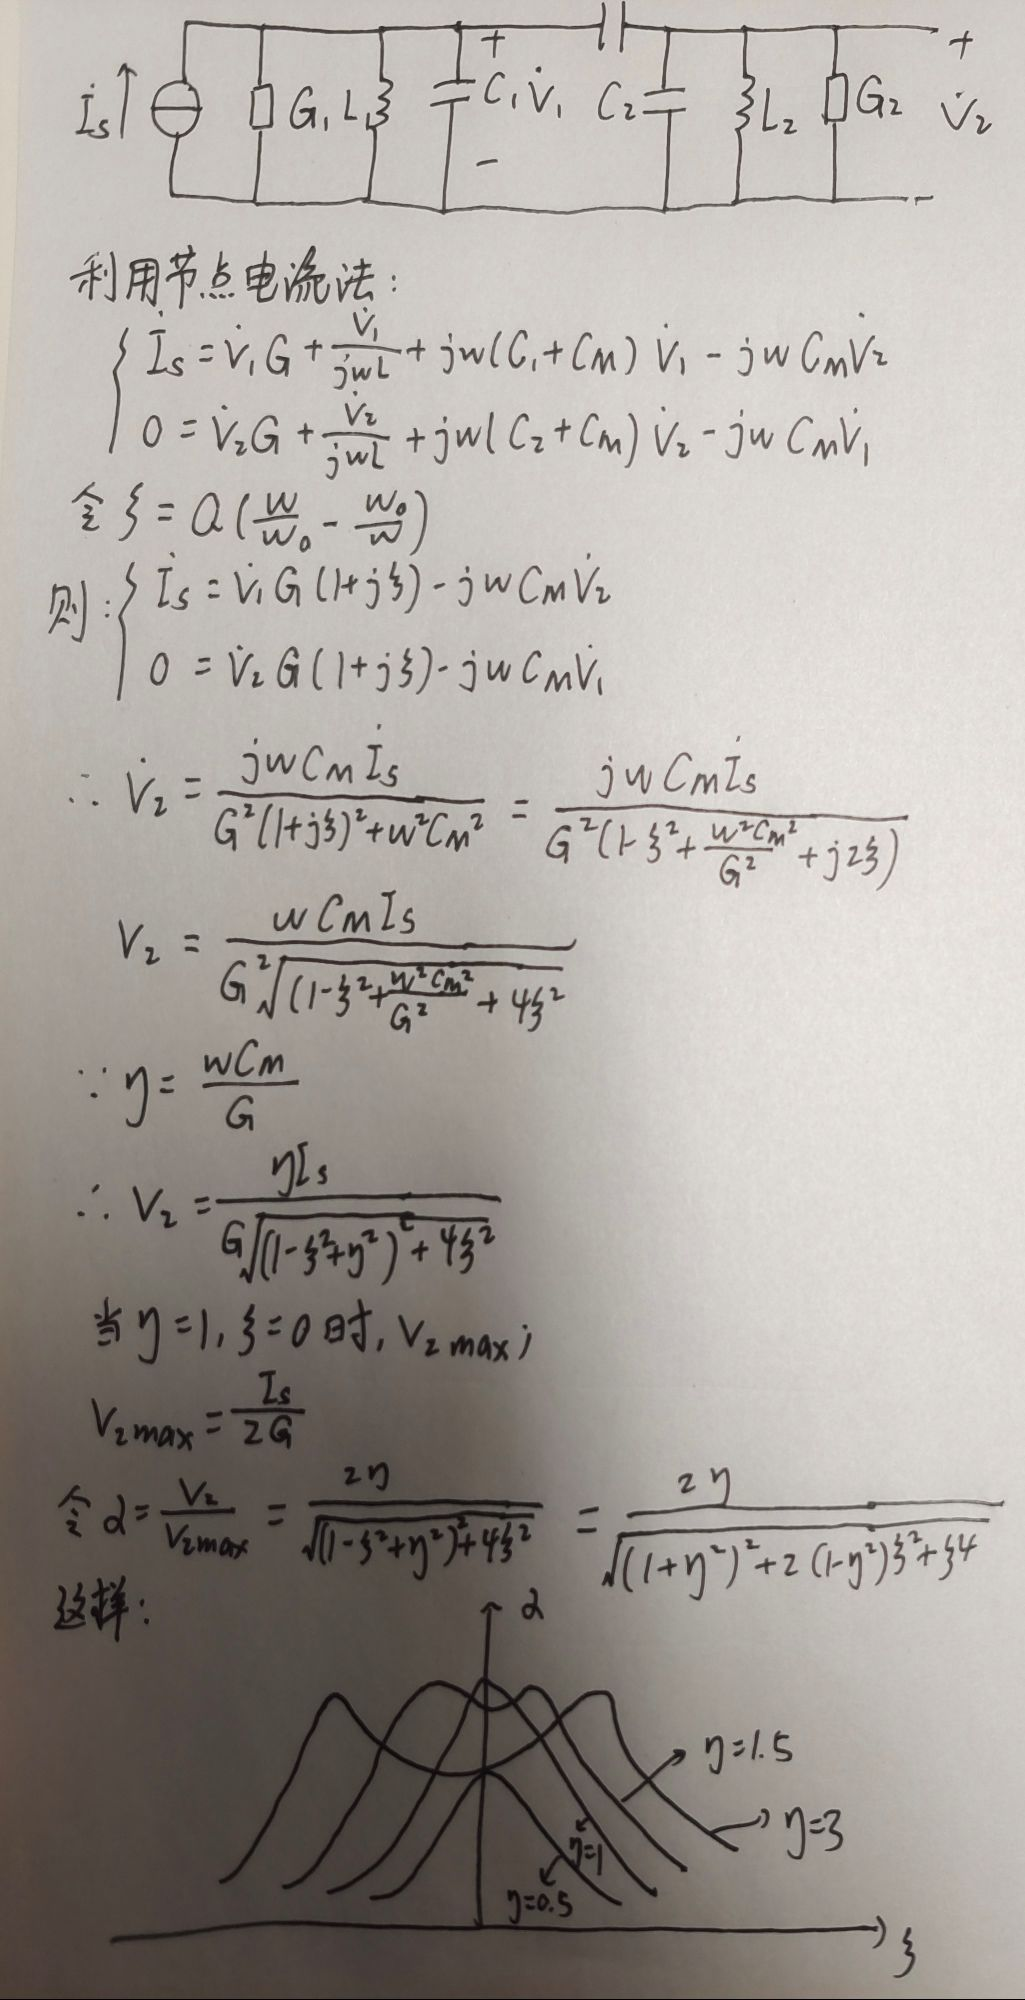 İs G₁ L₁ + C₁ V̇₁ - C₂ L₂ G₂ + V̇₂ -
利用节点电流法:
İs = V̇₁G + V̇₁/jwL + jw(C₁+CM) V̇₁ - jwCMV̇₂
0 = V̇₂G + V̇₂/jwL + jw(C₂+CM) V̇₂ - jwCMV̇₁
令 ξ = Q(w/w₀ - w₀/w)
则: İs = V̇₁G(1+jξ) - jwCMV̇₂
0 = V̇₂G(1+jξ) - jwCMV̇₁
∴ V̇₂ = jwCMİs / G²(1+jξ)²+w²CM² = jwCMİs / G²(1-ξ²+w²CM²/G²+j2ξ)
V₂ = wCMIs / G²√(1-ξ²+w²CM²/G²+4ξ²
∵ η = wCM/G
∴ V₂ = ηIs / G√(1-ξ²+η²)²+4ξ²
当η=1, ξ=0时, V₂max;
V₂max = Is/2G
令 α = V₂/V₂max = 2η / √(1-ξ²+η²)²+4ξ² = 2η / √(1+η²)²+2(1-η²)ξ²+ξ4
这样:
α
η=1.5
η=3
η=1
η=0.5
ξ